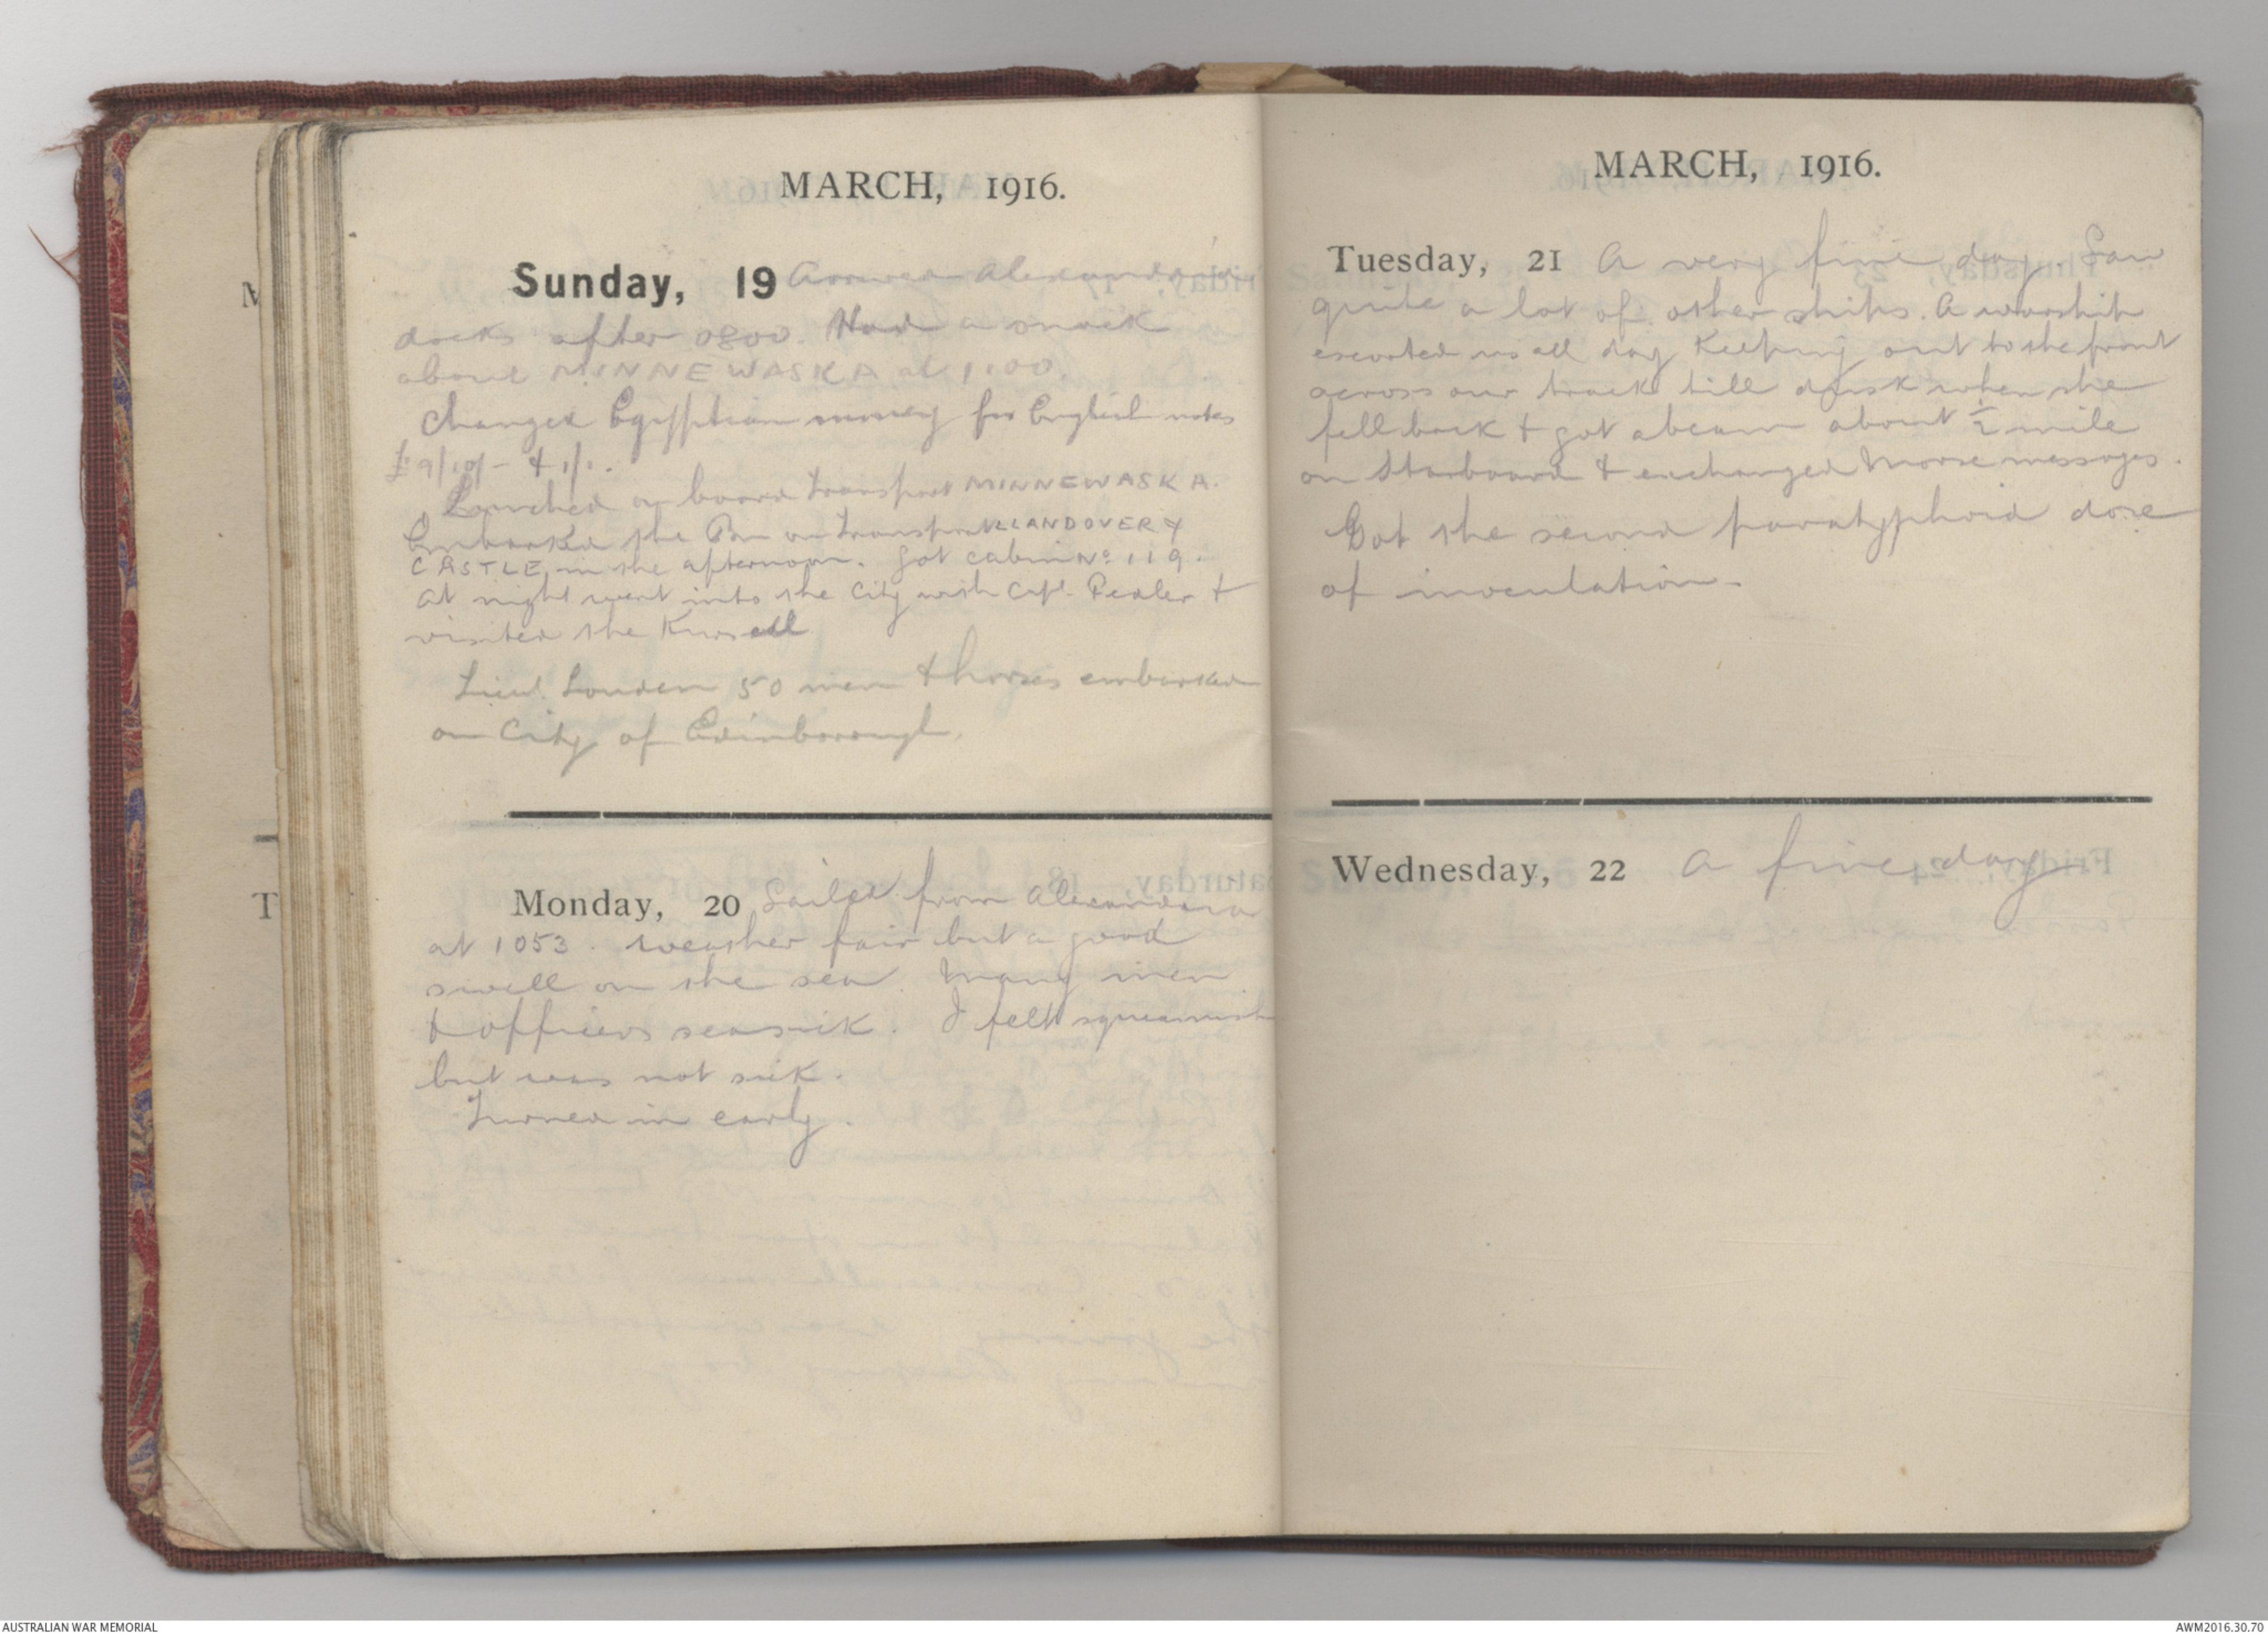 MARCH, 1916.
Sunday, 19 Arrived Alexandria
docks after 0800. Had a snack
about MINNEWASKA at 1100.
Changed Egyptian money for English notes
£9/10/- & 1/1.
Lunched on board transport MINNEWASKA.
Embarked the Bn on transport LLANDOVERY
CASTLE, in the afternoon. Got cabin No 119.
At night went into the City with Capt. &
visited the Kursall
Lieut. Louden 50 men & horses embarked
on City of Edinborough.
Monday, 20 Sailed from Alexandria
at 1053. Weather fair but a good
swell on the sea. Many men
& officers seasick. I felt squeamish
but was not sick.
Turned in early.
MARCH, 1916.
Tuesday, 21 A very fine day. Saw
quite a lot of other ships. A warship
escorted us all day keeping out to the front
across our track till dusk when she
fell back & got abeam about ½ mile
on starboard & exchanged Morse messages.
Got the second paratyphoid dose
of inoculation.
Wednesday, 22 A fine day
M
T
AUSTRALIAN WAR MEMORIAL
AWM2016.30.70